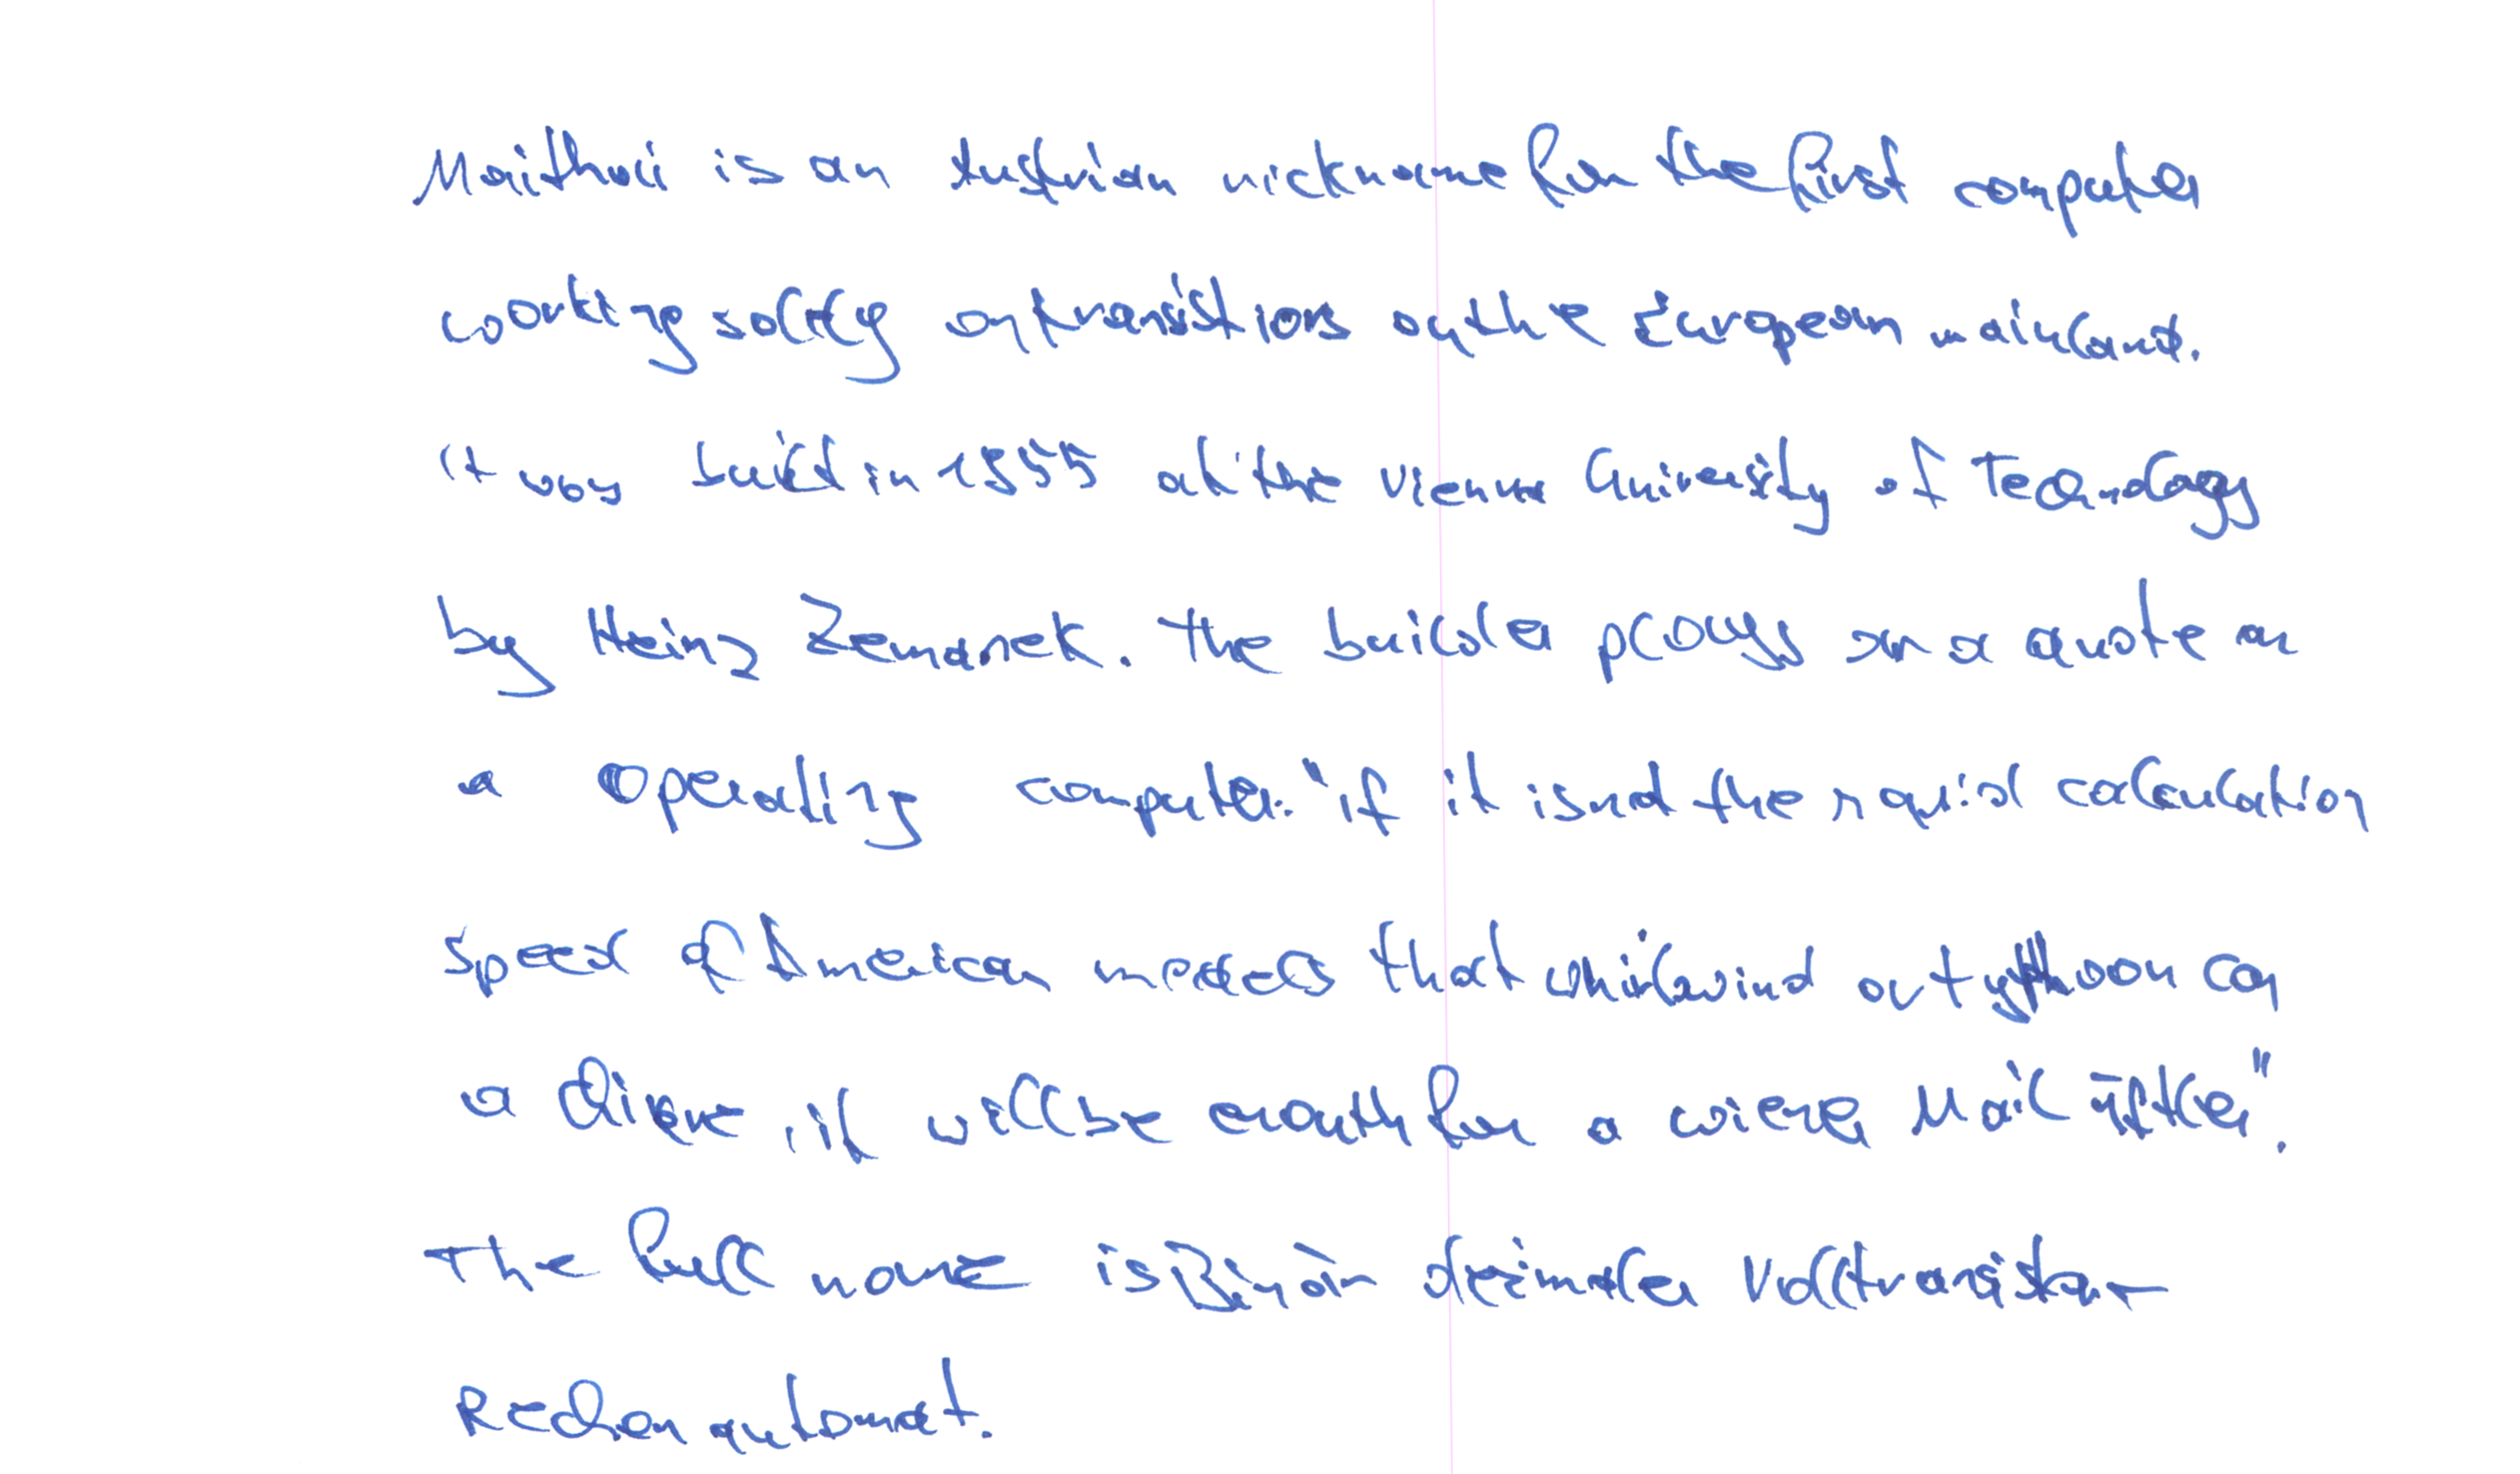 Mailüfterl is an Austrian nickname for the first computer
working solely on transistors on the European mainland.
It was build in 1955 at the Vienna University of Technology
by Heinz Zemanek. The builder plays on a quote on
a Operating computer: "if it isnt the rapid calculation
speed of American models that whirlwind or typhoon can
achieve, it will be enough for a wiener Mailüfterl".
The full name is Binär dezimaler Volltransistor-
Rechenautomat.